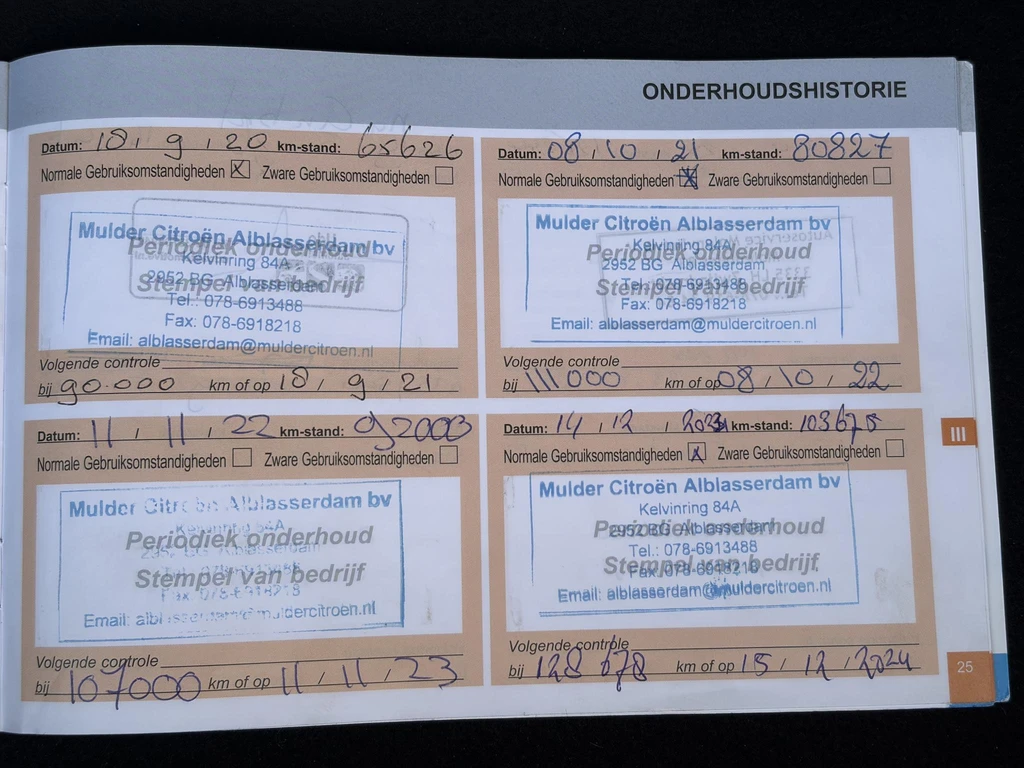 ONDERHOUDSHISTORIE
Datum: 18 / 9 / 20 km-stand: 65626
Normale Gebruiksomstandigheden ☒ Zware Gebruiksomstandigheden ☐
Mulder Citroën Alblasserdam bv
Periodiek onderhoud
Kelvinring 84A
2952 BG Alblasserdam
Stempel van bedrijf
Tel.: 078-6913488
Fax: 078-6918218
Email: alblasserdam@muldercitroen.nl
Volgende controle
bij 90.000 km of op 18 / 9 / 21
Datum: 08 / 10 / 21 km-stand: 80827
Normale Gebruiksomstandigheden ☒ Zware Gebruiksomstandigheden ☐
Mulder Citroën Alblasserdam bv
Kelvinring 84A
Periodiek onderhoud
2952 BG Alblasserdam
Stempel van bedrijf
Tel.: 078-6913488
Fax: 078-6918218
Email: alblasserdam@muldercitroen.nl
Volgende controle
bij 111000 km of op 08 / 10 / 22
Datum: 11 / 11 / 22 km-stand: 92003
Normale Gebruiksomstandigheden ☐ Zware Gebruiksomstandigheden ☐
Mulder Citroën Alblasserdam bv
Kelvinring 84A
Periodiek onderhoud
2952 BG Alblasserdam
Stempel van bedrijf
Tel.: 078-6913488
Fax: 078-6918218
Email: alblasserdam@muldercitroen.nl
Volgende controle
bij 107000 km of op 11 / 11 / 23
Datum: 14 / 12 / 2023 km-stand: 103678
Normale Gebruiksomstandigheden ☒ Zware Gebruiksomstandigheden ☐
Mulder Citroën Alblasserdam bv
Kelvinring 84A
Periodiek onderhoud
2952 BG Alblasserdam
Tel.: 078-6913488
Stempel van bedrijf
Fax: 078-6918218
Email: alblasserdam@muldercitroen.nl
Volgende controle
bij 128678 km of op 15 / 12 / 2024
III
25